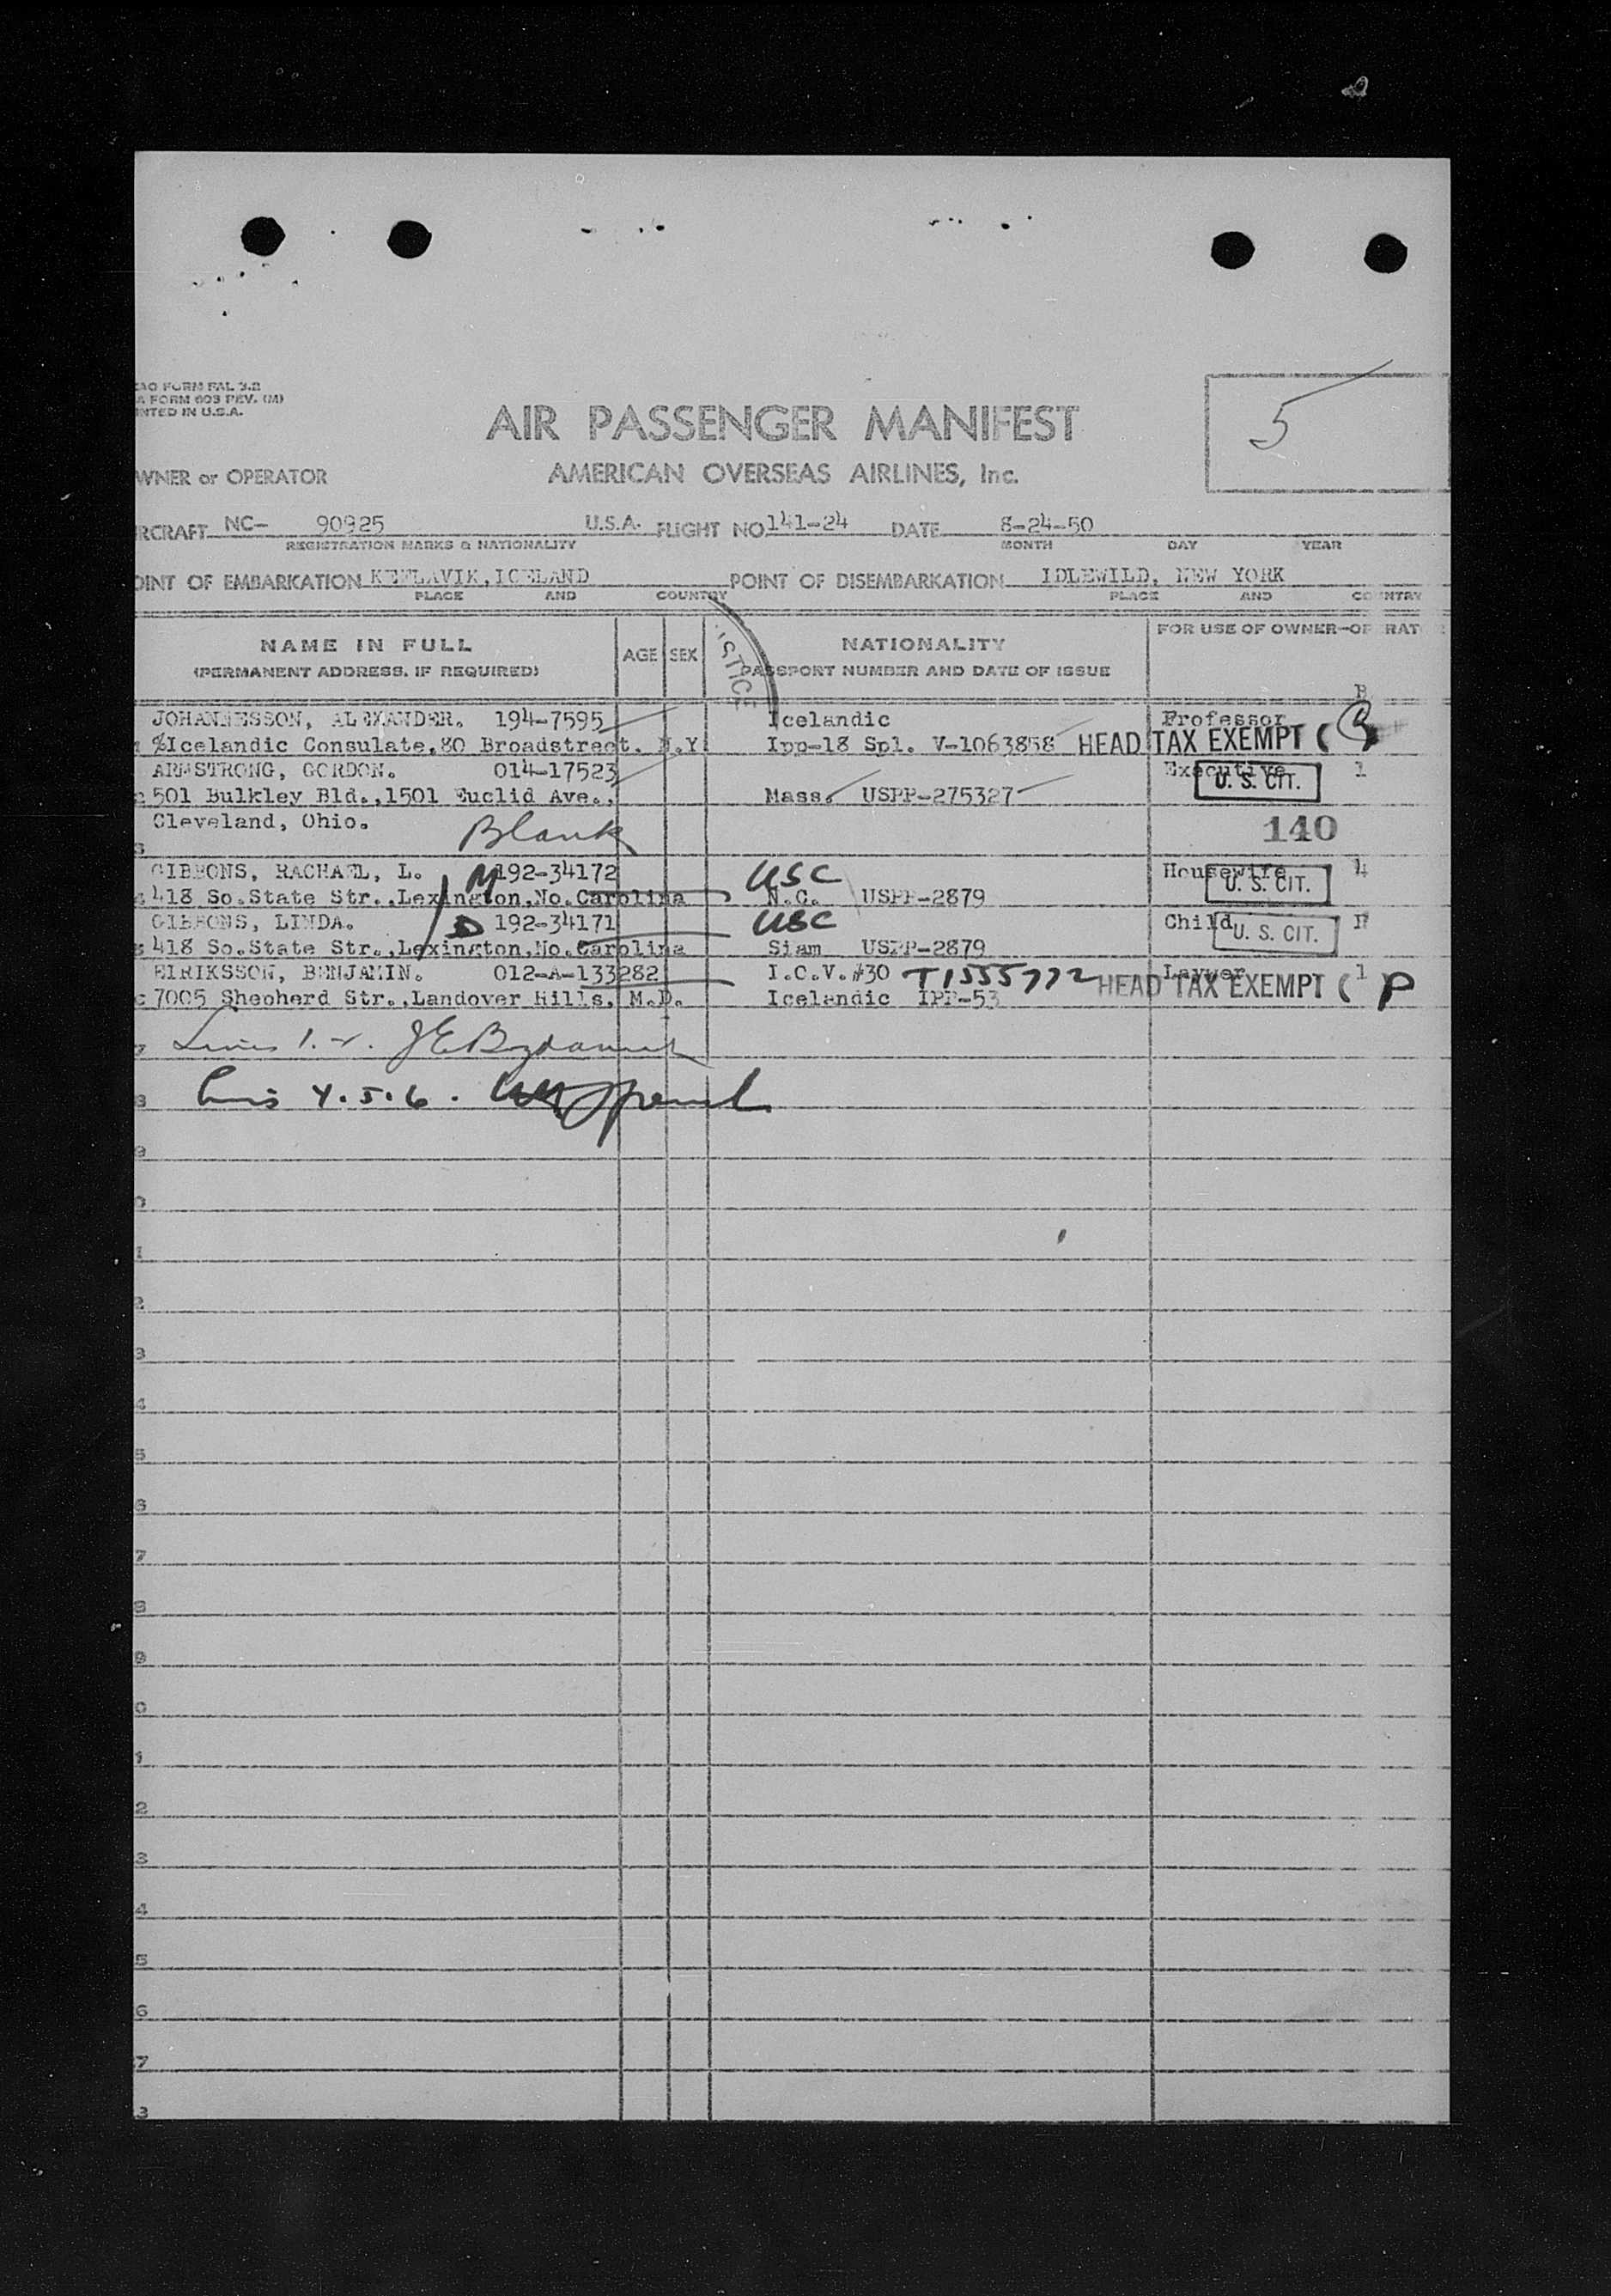 AO FORM FAL 3.2
A FORM 603 REV. (M)
NTED IN U.S.A.
5
AIR PASSENGER MANIFEST
WNER or OPERATOR AMERICAN OVERSEAS AIRLINES, Inc.
RCRAFT NC- 90925 U.S.A. FLIGHT NO 141-24 DATE 8-24-50
REGISTRATION MARKS & NATIONALITY MONTH DAY YEAR
OINT OF EMBARKATION KEFLAVIK, ICELAND POINT OF DISEMBARKATION IDLEWILD, NEW YORK
PLACE AND COUNTRY PLACE AND CO NTRY
NAME IN FULL AGE SEX NATIONALITY FOR USE OF OWNER-OP RAT
(PERMANENT ADDRESS, IF REQUIRED) PASSPORT NUMBER AND DATE OF ISSUE
STICE
JOHANNESSON, ALEXANDER. 194-7595 Icelandic Professor
%Icelandic Consulate,80 Broadstreet. N.Y. Ipp-18 Spl. V-1063858 HEAD TAX EXEMPT (
ARMSTRONG, GORDON. 014-17523 Executive 1
501 Bulkley Bld.,1501 Euclid Ave., Mass. USPP-275327 U. S. CIT.
Cleveland, Ohio. 140
Blank
GIBBONS, RACHAEL, L. M 192-34172 USC Housewife 4
418 So.State Str.,Lexington,No.Carolina N.C. USPP-2879 U. S. CIT.
GIBBONS, LINDA. D 192-34171 USC Child
418 So.State Str.,Lexington,No.Carolina Siam USPP-2879 U. S. CIT.
EIRIKSSON, BENJAMIN. 012-A-133282 I.C.V.#30 T1555772 Lawyer 1
7005 Shepherd Str.,Landover Hills, M.D. Icelandic IPP-53 HEAD TAX EXEMPT ( P
Lines 1.
4.5.6.